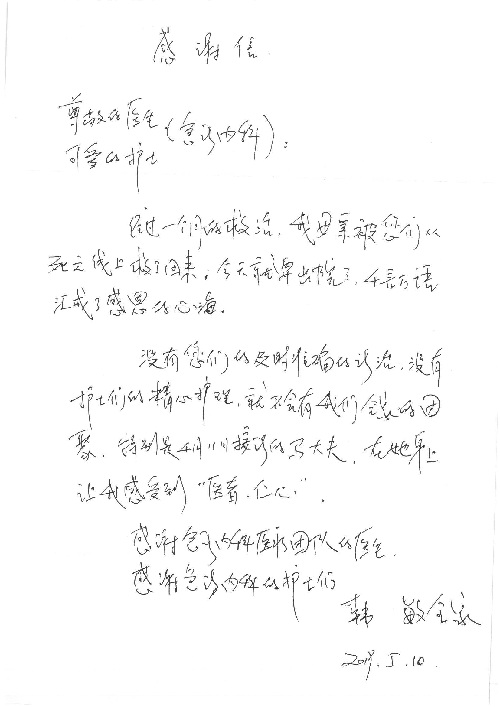 感谢信
尊敬的医生
(急诊内科):
可爱的护士
经过一个月的救治,我母亲被您们从
死亡线上救了回来,今天就要出院了,千言万语
汇成了感恩的心海。
没有您们的及时准确的诊治,没有
护士们的精心护理,就不会有我们全家的团
聚,特别是4月11日接诊的马大夫,在她身上
让我感受到“医者仁心”。
感谢急诊内科医疗团队的医生
感谢急诊内科的护士们
韩敏全家
5.10.